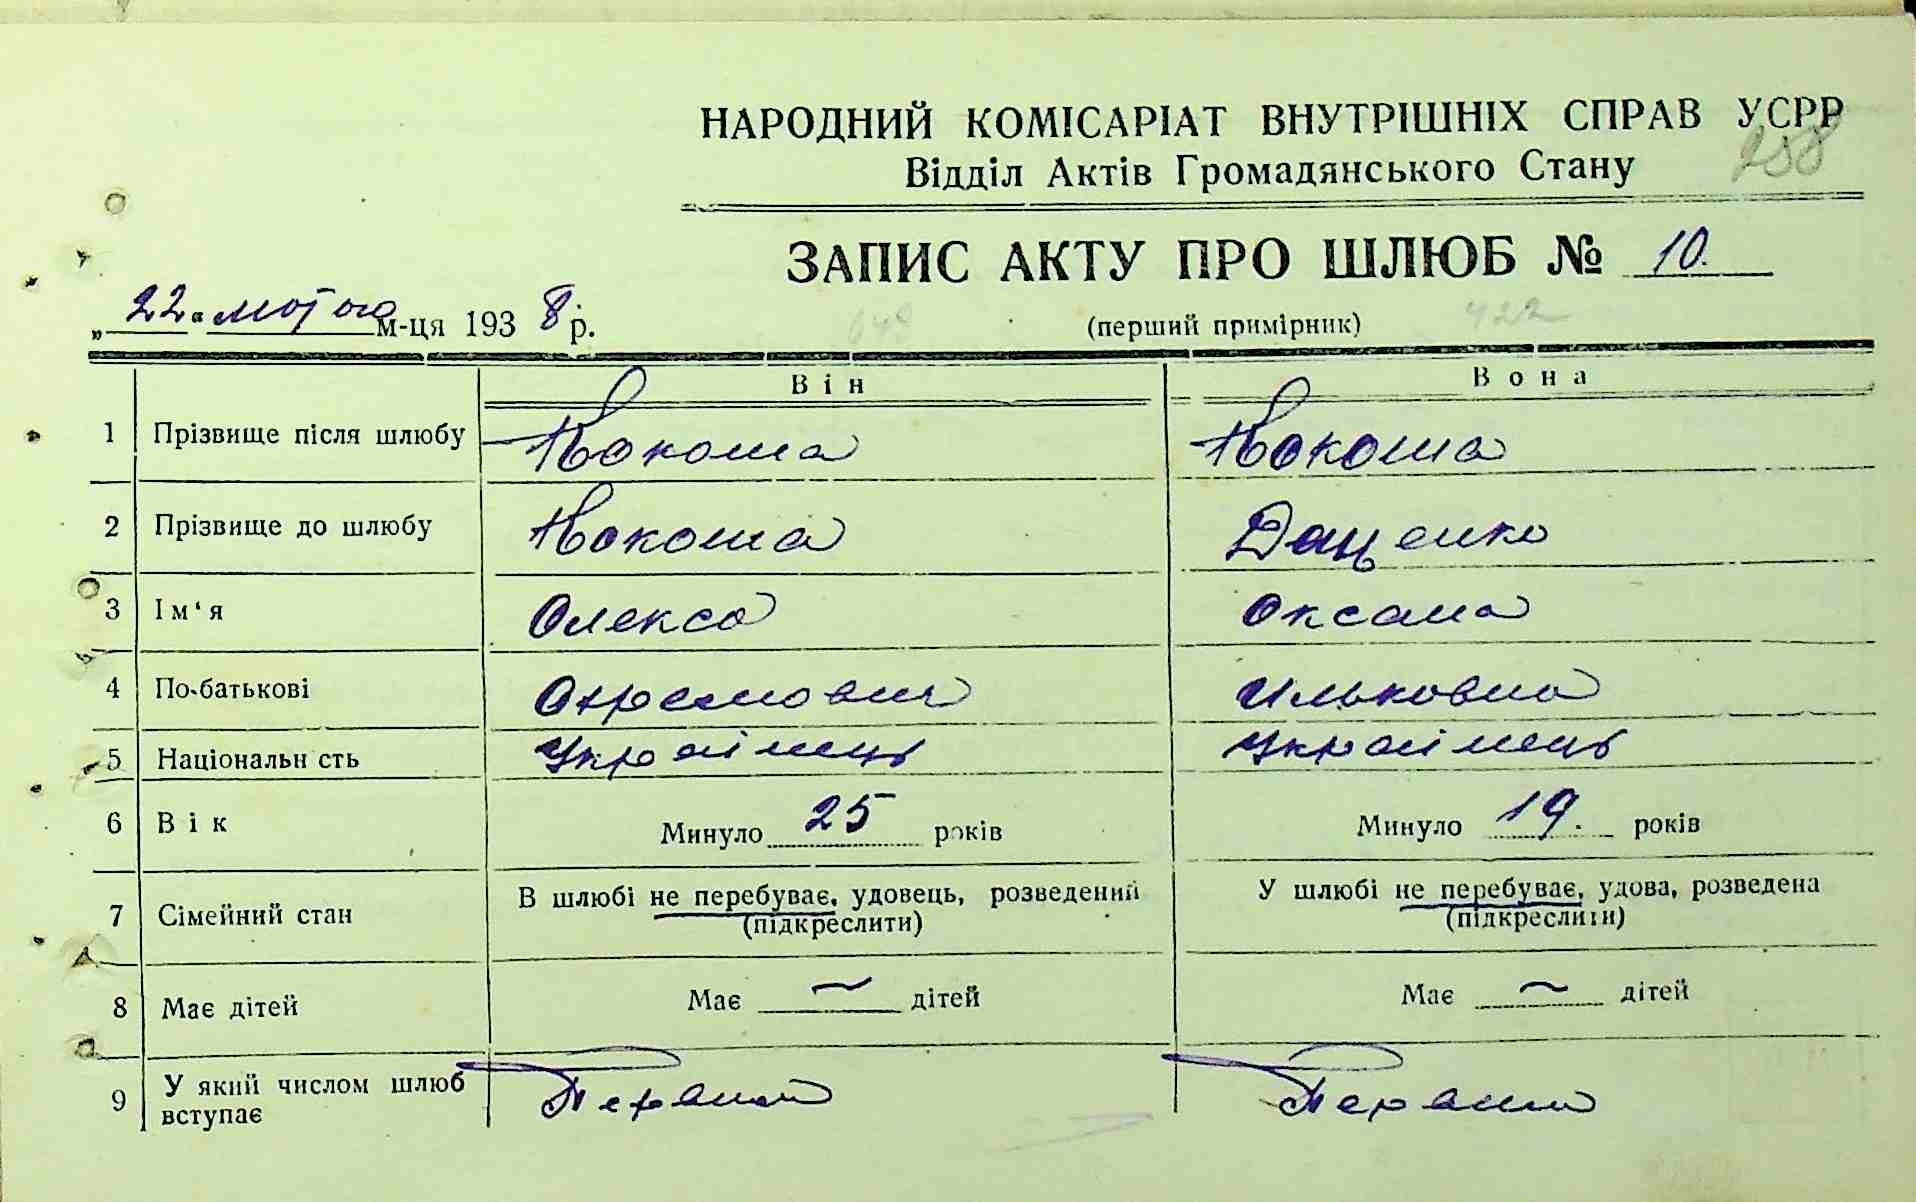 НАРОДНИЙ КОМІСАРІАТ ВНУТРІШНІХ СПРАВ УСРР
Відділ Актів Громадянського Стану
258
ЗАПИС АКТУ ПРО ШЛЮБ № 10.
„22“ лютого м-ця 1938 р.
(перший примірник)
422
Він Вона
1 Прізвище після шлюбу Кокоша Кокоша
2 Прізвище до шлюбу Кокоша Даценко
3 Ім‘я Олекса Оксана
4 По-батькові Охремович Ильковна
5 Національн сть Україїнець Україїнець
6 Вік Минуло 25 років Минуло 19. років
7 Сімейний стан В шлюбі не перебуває, удовець, розведений У шлюбі не перебуває, удова, розведена
(підкреслити) (підкреслити)
8 Має дітей Має — дітей Має — дітей
9 У який числом шлюб вступає Первий Первий